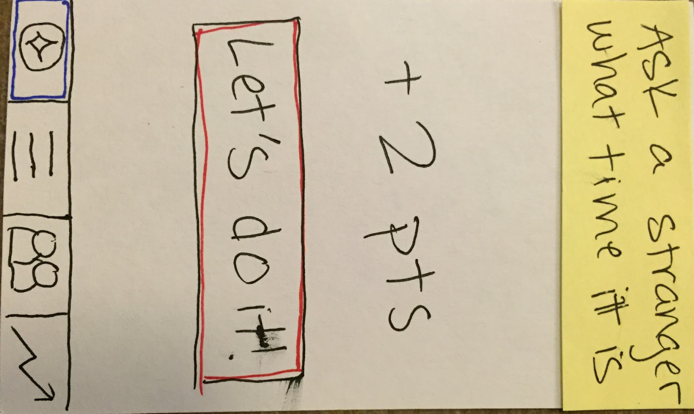 Ask a stranger
what time it is
+2 pts
Let's do it!